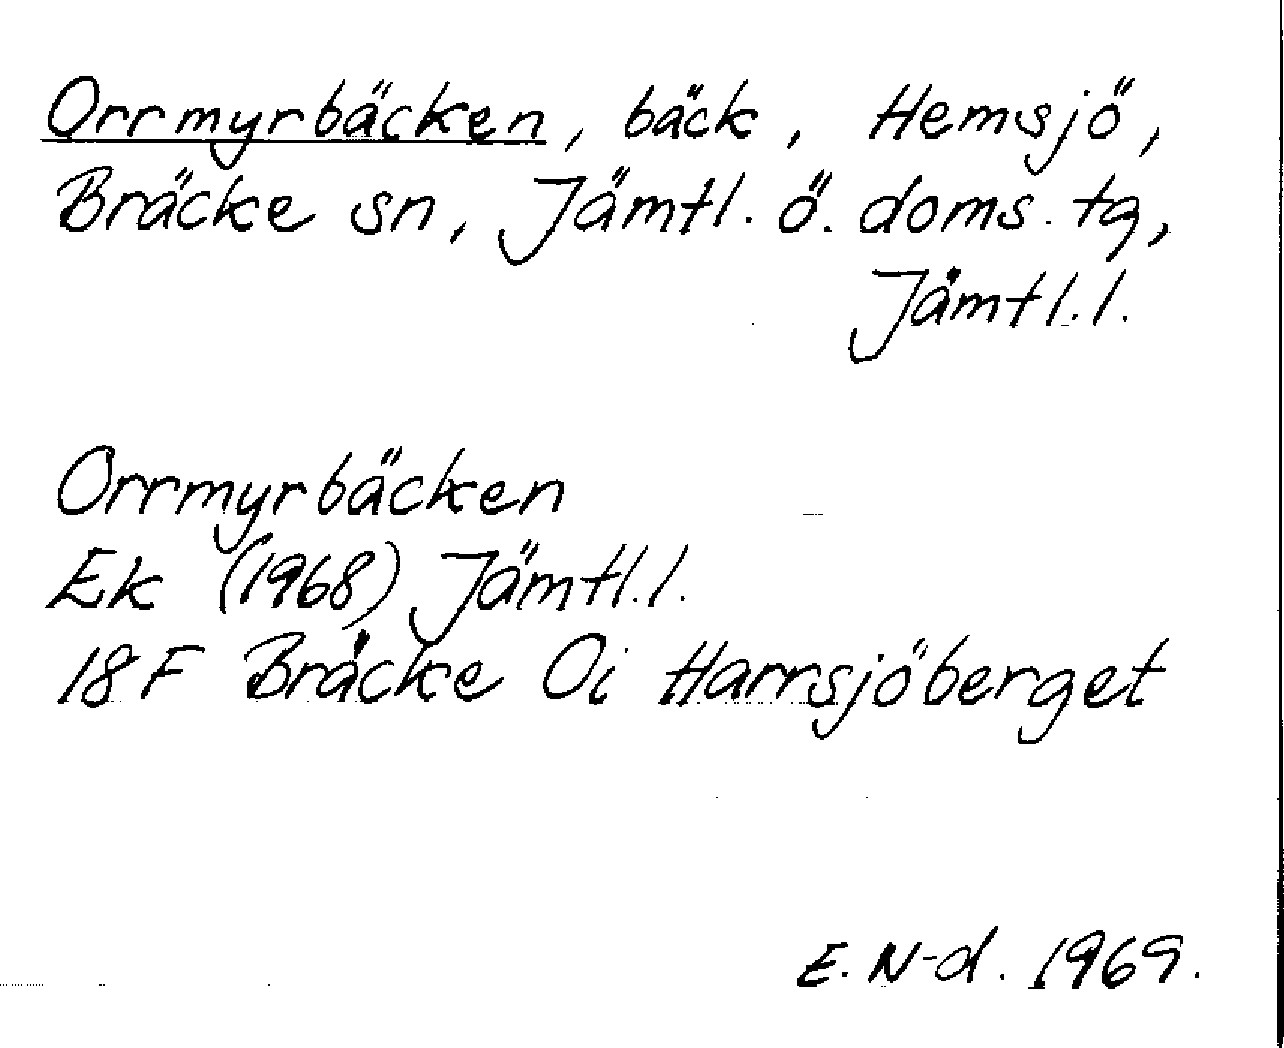 Orrmyrbäcken, bäck, Hemsjö,
Bräcke sn, Jämtl. ö. doms. tg,
Jämtl. l.
Orrmyrbäcken
Ek (1968) Jämtl. l.
18F Bräcke Oi Harrsjöberget
E. N-d. 1969.